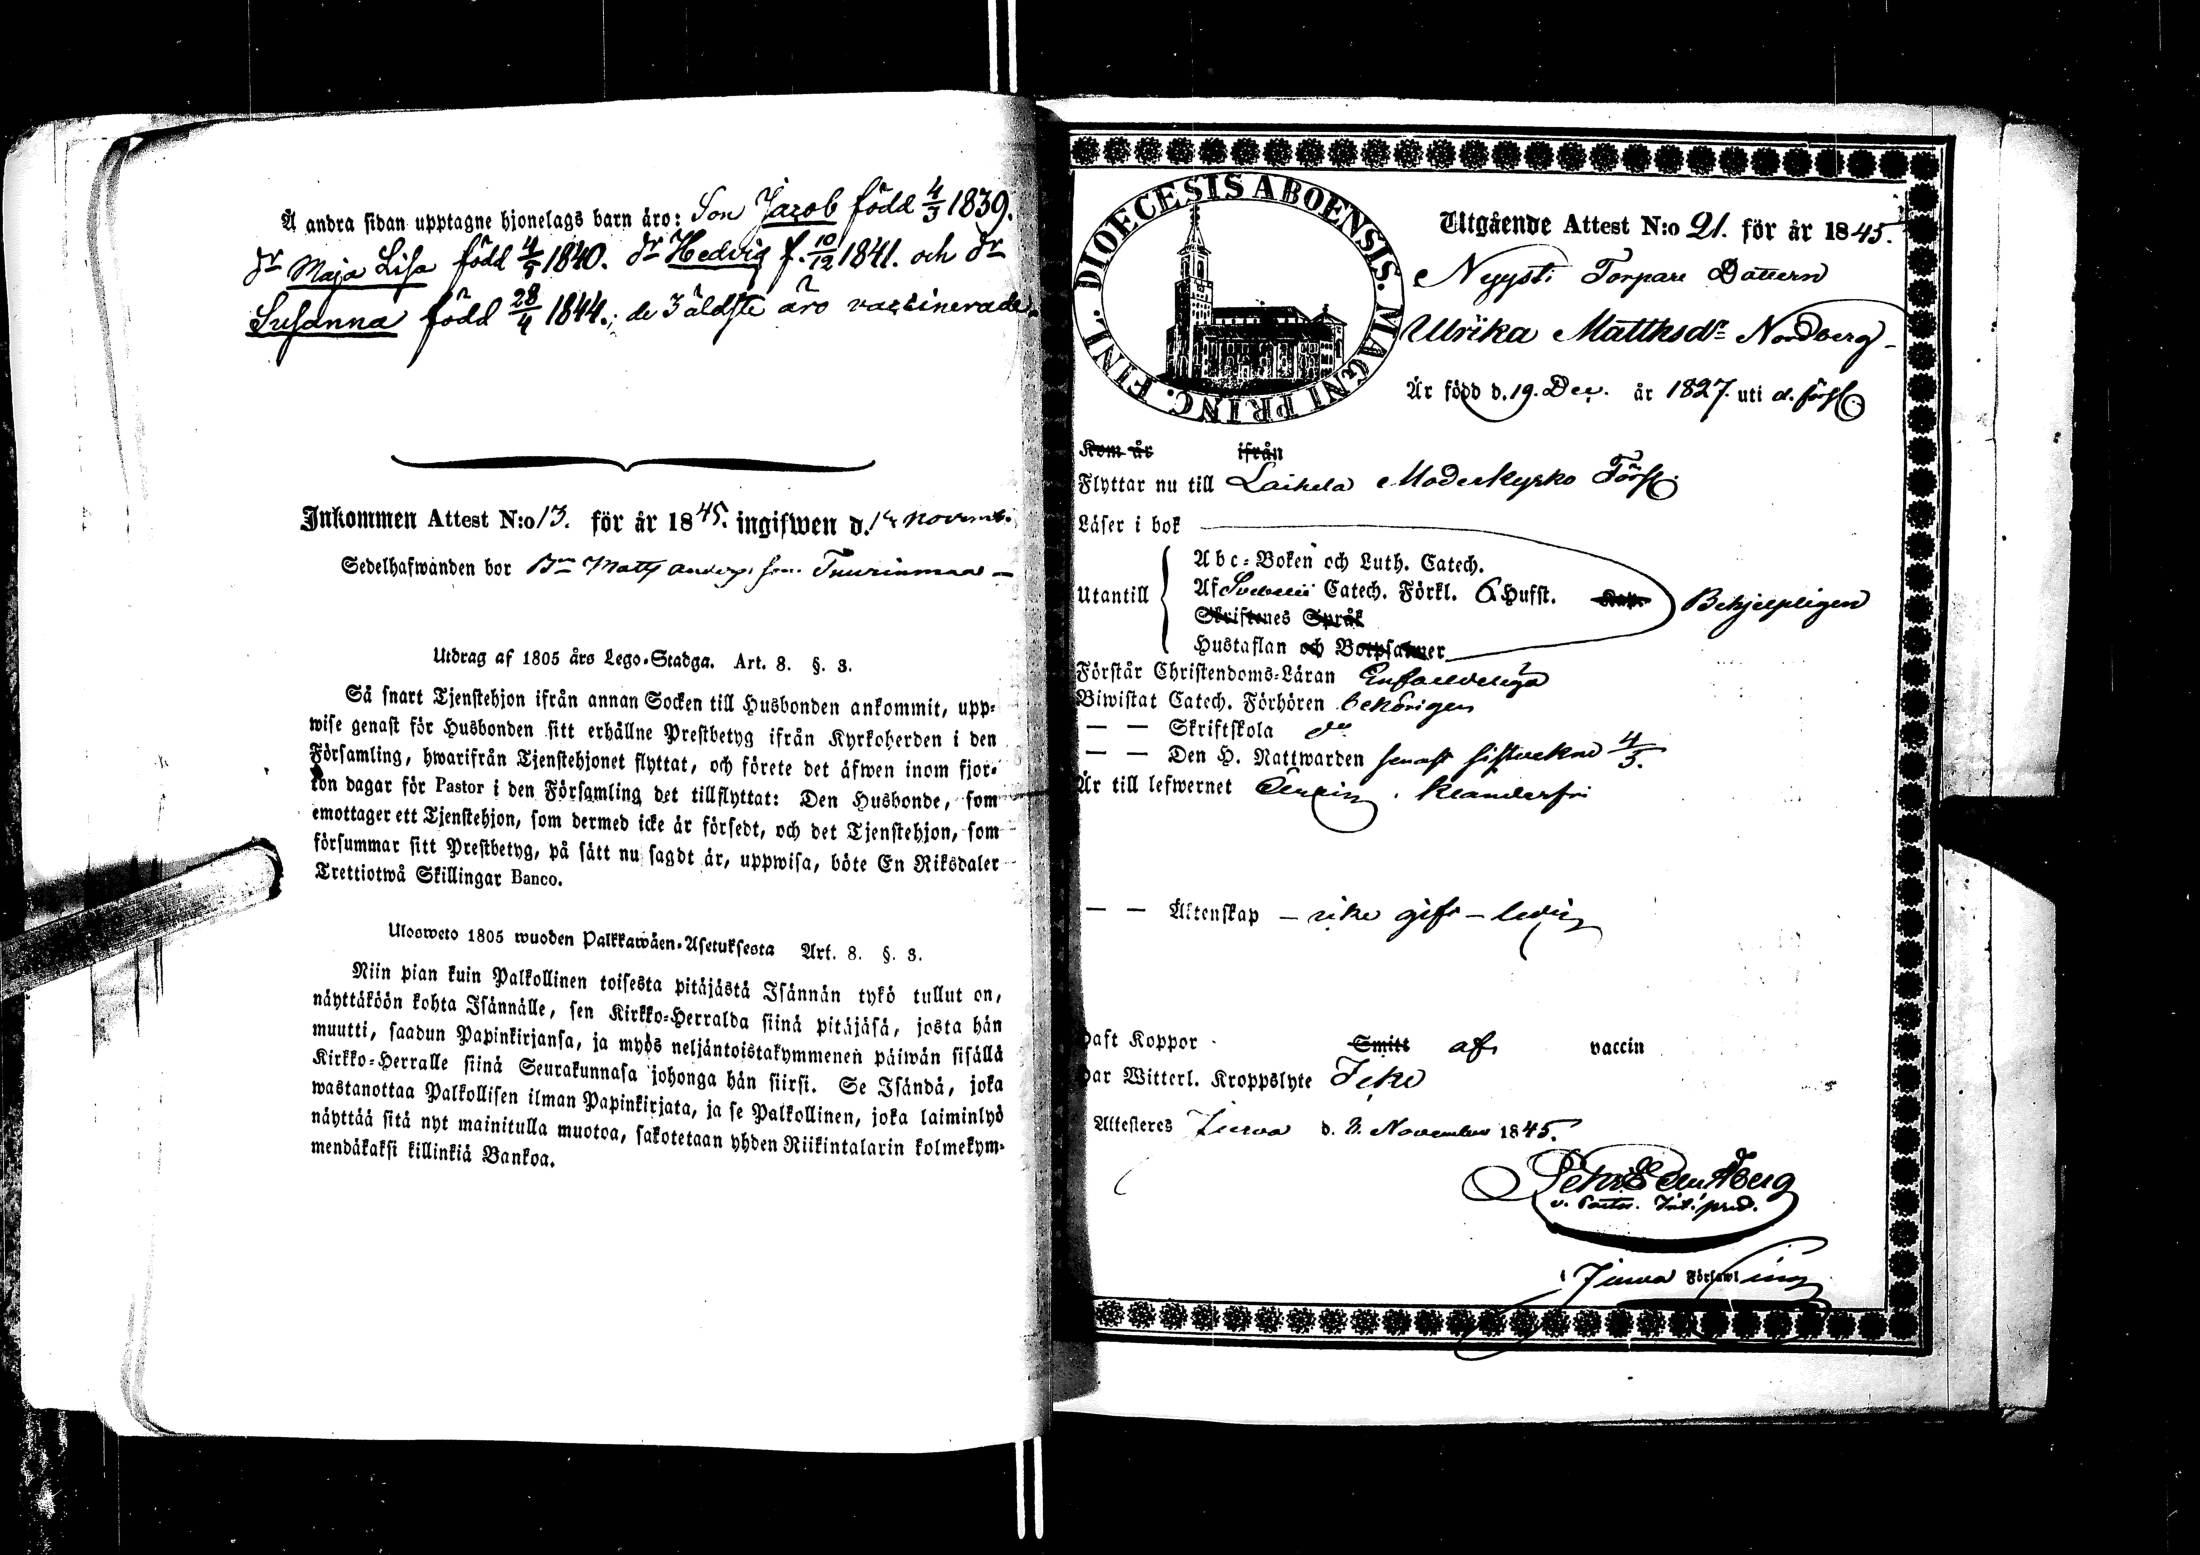 Å andra sidan upptagne hjonelags barn äro: Son Jacob född 4/3 1839.
dr Maja Lisa född 4/5 1840. dr Hedvig f. 10/12 1841. och dr
Susanna född 28/4 1844.; de 3 äldste äro vaccinerade.
Inkommen Attest N:o 13. för år 1845. ingifwen d. Novemb.
Sedelhafwanden bor Matts Anders son
Utdrag af 1805 års Lego-Stadga. Art. 8. §. 3.
Så snart Tjenstehjon ifrån annan Socken till Husbonden ankommit, upp-
wise genast för Husbonden sitt erhållne Prestbetyg ifrån Kyrkoherden i den
Församling, hwarifrån Tjenstehjonet flyttat, och förete det äfwen inom fjor-
ton dagar för Pastor i den Församling det tillflyttat: Den Husbonde, som
emottager ett Tjenstehjon, som dermed icke är försedt, och det Tjenstehjon, som
försummar sitt Prestbetyg, på sätt nu sagdt är, uppwisa, böte En Riksdaler
Trettiotwå Skillingar Banco.
Ulosweto 1805 wuoden Palkkawäen-Asetuksesta Art. 8. §. 3.
Niin pian kuin Palkollinen toisesta pitäjästä Isännän tykö tullut on,
näyttäköön kohta Isännälle, sen Kirkko-Herralda siinä pitäjäsä, josta hän
muutti, saadun Papinkirjansa, ja myös neljäntoistakymmenen päiwän sisällä
Kirkko-Herralle siinä Seurakunnasa johonga hän siirsi. Se Isändä, joka
wastanottaa Palkollisen ilman Papinkirjata, ja se Palkollinen, joka laiminlyö
näyttää sitä nyt mainitulla muotoa, sakotetaan yhden Riikintalarin kolmekym-
mendäkaksi killinkiä Bankoa.
DIOECESIS ABOENSIS. MAGNI PRINC. FINL.
Utgående Attest N:o 21. för år 1845.
Nyysti Torpare Dottern
Ulrika Matthsdr Nordberg
Är född d. 19. Dec. år 1827. uti d. förs.
Kom år ifrån
Flyttar nu till Laihela Moderkyrko Förs.
Läser i bok
Utantill
Abc-Boken och Luth. Catech.
Af Svebelii Catech. Förkl. 6. Hufst.
Skriftenes Språk
Hustaflan och Botpsalmer
Behjelpligen
Förstår Christendoms-Läran Enfaldeliga
Biwistat Catech. Förhören behörigen
— — Skriftskola do
— — Den H. Nattwarden senast 4/5.
Är till lefwernet klanderfri
— — Äktenskap — icke gift — ledig
Haft Koppor Smitt af vaccin
Har Witterl. Kroppslyte Icke
Attesteres Jurva d. 2. November 1845.
v. Pastor.
i Jurva Församling